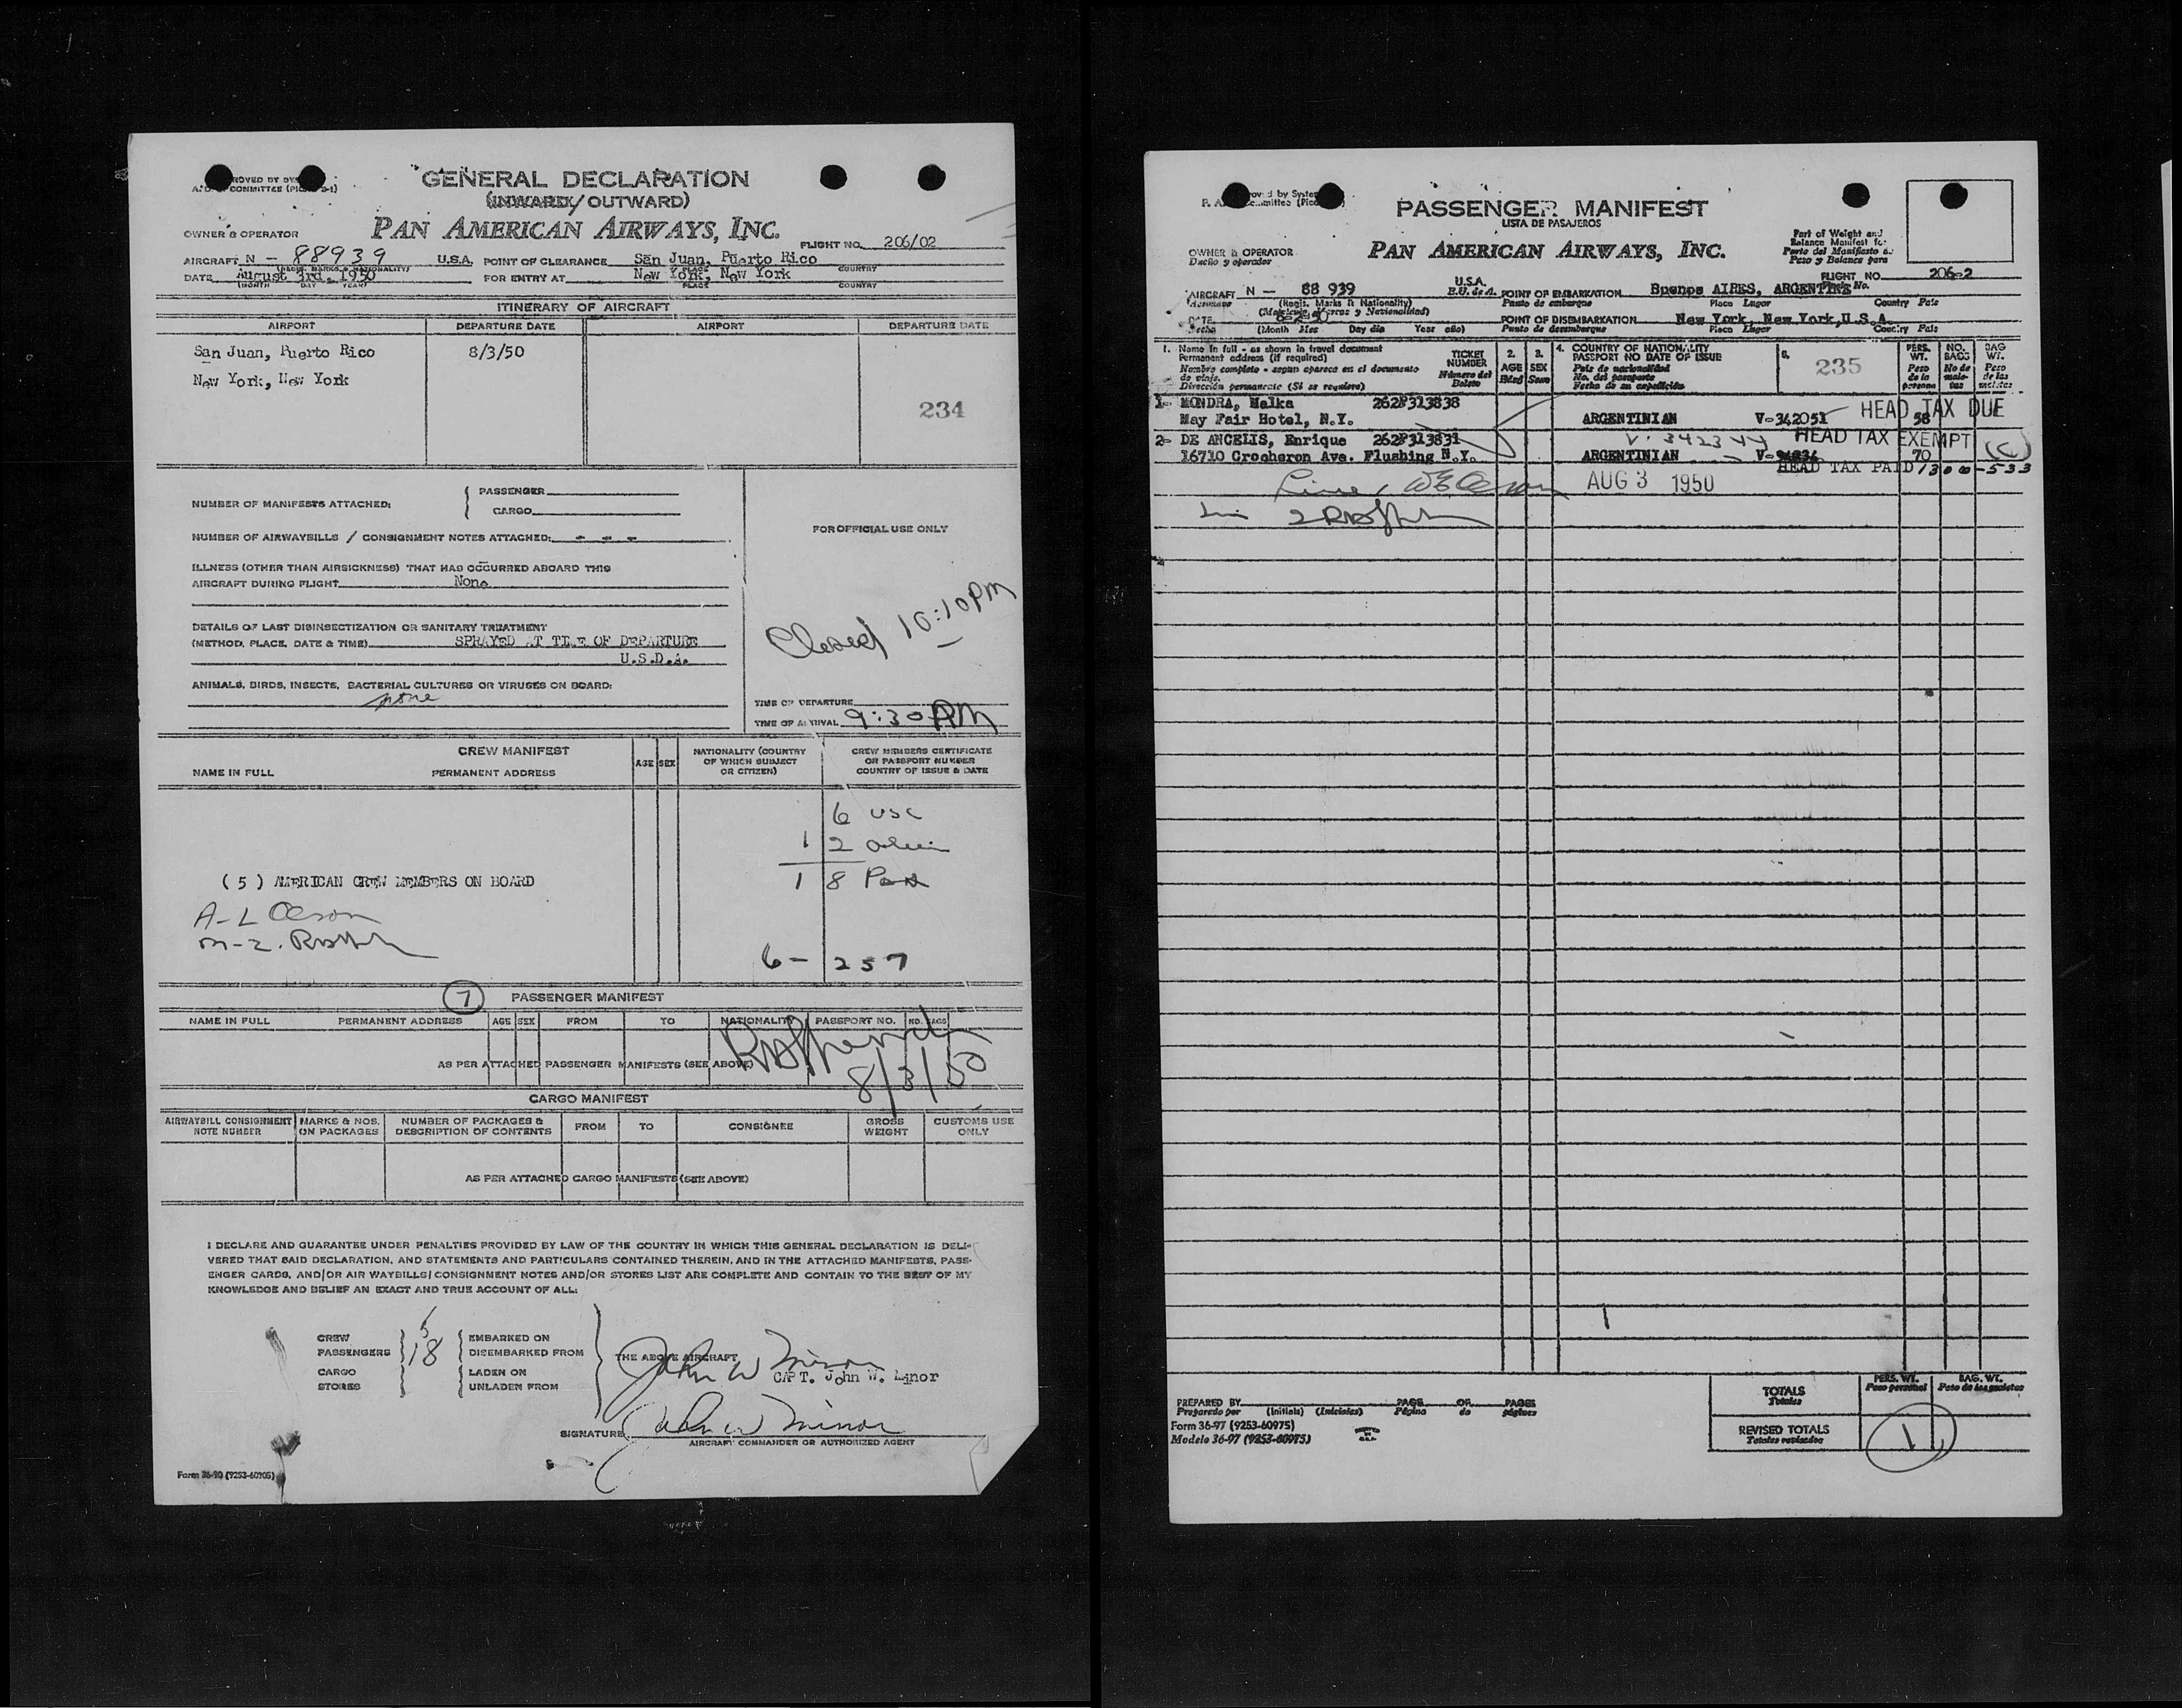 GENERAL DECLARATION
(INWARD/OUTWARD)
OWNER & OPERATOR PAN AMERICAN AIRWAYS, INC. FLIGHT NO. 206/02
AIRCRAFT N - 88939 U.S.A. POINT OF CLEARANCE San Juan, Puerto Rico
(REGIS. MARKS & NATIONALITY) PLACE COUNTRY
DATE August 3rd, 1950 FOR ENTRY AT New York, New York
(MONTH DAY YEAR) PLACE COUNTRY
ITINERARY OF AIRCRAFT
AIRPORT DEPARTURE DATE AIRPORT DEPARTURE DATE
San Juan, Puerto Rico 8/3/50
New York, New York
234
NUMBER OF MANIFESTS ATTACHED: PASSENGER
CARGO
FOR OFFICIAL USE ONLY
NUMBER OF AIRWAYBILLS / CONSIGNMENT NOTES ATTACHED: - - -
ILLNESS (OTHER THAN AIRSICKNESS) THAT HAS OCCURRED ABOARD THIS
AIRCRAFT DURING FLIGHT None
Closed 10:10 PM
DETAILS OF LAST DISINSECTIZATION OR SANITARY TREATMENT
(METHOD, PLACE, DATE & TIME) SPRAYED AT TIME OF DEPARTURE
U.S.D.A.
ANIMALS, BIRDS, INSECTS, BACTERIAL CULTURES OR VIRUSES ON BOARD:
none
TIME OF DEPARTURE
TIME OF ARRIVAL 9:30 PM
CREW MANIFEST
NAME IN FULL PERMANENT ADDRESS AGE SEX NATIONALITY (COUNTRY OF WHICH SUBJECT OR CITIZEN) CREW MEMBERS CERTIFICATE OR PASSPORT NUMBER COUNTRY OF ISSUE & DATE
6 USC
1 2 alien
1 8 Pass
(5) AMERICAN CREW MEMBERS ON BOARD
A-L Olson
6 - 257
7 PASSENGER MANIFEST
NAME IN FULL PERMANENT ADDRESS AGE SEX FROM TO NATIONALITY PASSPORT NO. NO. BAGS
AS PER ATTACHED PASSENGER MANIFESTS (SEE ABOVE)
8/3/50
CARGO MANIFEST
AIRWAYBILL CONSIGNMENT NOTE NUMBER MARKS & NOS. ON PACKAGES NUMBER OF PACKAGES & DESCRIPTION OF CONTENTS FROM TO CONSIGNEE GROSS WEIGHT CUSTOMS USE ONLY
AS PER ATTACHED CARGO MANIFESTS (SEE ABOVE)
I DECLARE AND GUARANTEE UNDER PENALTIES PROVIDED BY LAW OF THE COUNTRY IN WHICH THIS GENERAL DECLARATION IS DELI-
VERED THAT SAID DECLARATION, AND STATEMENTS AND PARTICULARS CONTAINED THEREIN, AND IN THE ATTACHED MANIFESTS, PASS-
ENGER CARDS, AND/OR AIR WAYBILLS/CONSIGNMENT NOTES AND/OR STORES LIST ARE COMPLETE AND CONTAIN TO THE BEST OF MY
KNOWLEDGE AND BELIEF AN EXACT AND TRUE ACCOUNT OF ALL:
CREW EMBARKED ON
PASSENGERS 18 DISEMBARKED FROM THE ABOVE AIRCRAFT
CARGO LADEN ON John W Minor CAPT. John W. Minor
STORES UNLADEN FROM
SIGNATURE John W Minor
AIRCRAFT COMMANDER OR AUTHORIZED AGENT
Form 36-90 (9253-60905)
PASSENGER MANIFEST
LISTA DE PASAJEROS
OWNER & OPERATOR PAN AMERICAN AIRWAYS, INC.
Dueño y operador
Part of Weight and
Balance Manifest for
Parte del Manifiesto de
Peso y Balance para
FLIGHT NO. 206-2
AIRCRAFT N - 88 939 U.S.A. POINT OF EMBARKATION Buenos AIRES, ARGENTINE
Aeronave (Regis. Marks & Nationality) E.U. de A. Punto de embarque Place Lugar Country País
DATE POINT OF DISEMBARKATION New York, New York, U.S.A.
Fecha (Month Mes Day día Year año) Punto de desembarque Place Lugar Country País
1. Name in full - as shown in travel document
Permanent address (if required)
Nombre completo - segun aparece en el documento
de viaje.
Dirección permanente (Si se requiere)
TICKET NUMBER Número del Boleto
2. AGE Edad
3. SEX Sexo
4. COUNTRY OF NATIONALITY
PASSPORT NO DATE OF ISSUE
País de nacionalidad
No. del pasaporte
Fecha de su expedición
235
PERS. WT. Peso de la persona
NO. BAGS No de maletas
BAG WT. Peso de las maletas
1- MONDRA, Malka 262P313838 HEAD TAX DUE
May Fair Hotel, N.Y. ARGENTINIAN V-342051 58
2- DE ANGELIS, Enrique 262P313831 V-342344 HEAD TAX EXEMPT (C)
16710 Crocheron Ave. Flushing N.Y. ARGENTINIAN 70
HEAD TAX PAID 1300-533
AUG 3 1950
PREPARED BY PAGE OF PAGES
Preparado por (Initials) (Iniciales) Página de páginas
Form 36-97 (9253-60975)
Modelo 36-97 (9253-60975)
TOTALS PERS. WT. BAG. WT.
Totales Peso personal Peso de las maletas
REVISED TOTALS
Totales revisados
1